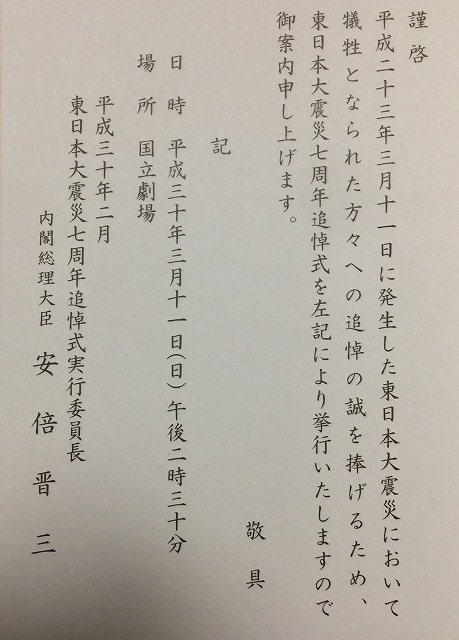 謹啓
平成二十三年三月十一日に発生した東日本大震災において
犠牲となられた方々への追悼の誠を捧げるため、
東日本大震災七周年追悼式を左記により挙行いたしますので
御案内申し上げます。
敬具
記
日時 平成三十年三月十一日(日)午後二時三十分
場所 国立劇場
平成三十年二月
東日本大震災七周年追悼式実行委員長
内閣総理大臣 安倍晋三